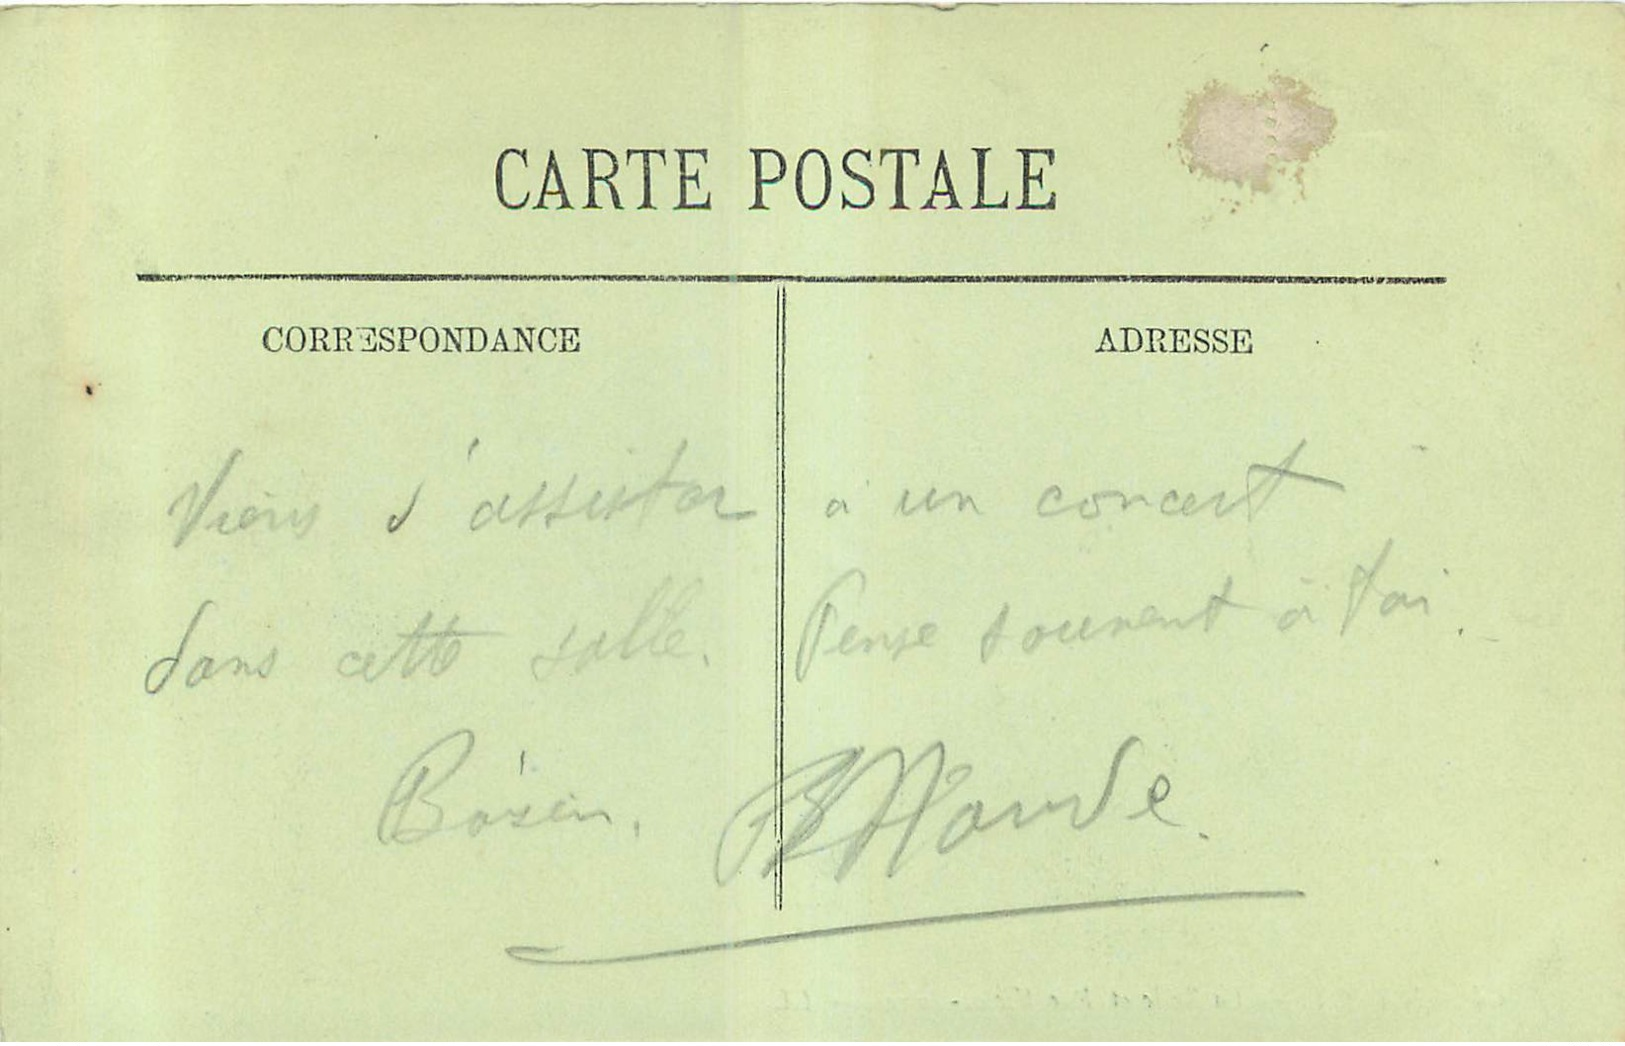 CARTE POSTALE
CORRESPONDANCE
ADRESSE
Viens d'assister à un concert
dans cette salle. Pense souvent à toi.